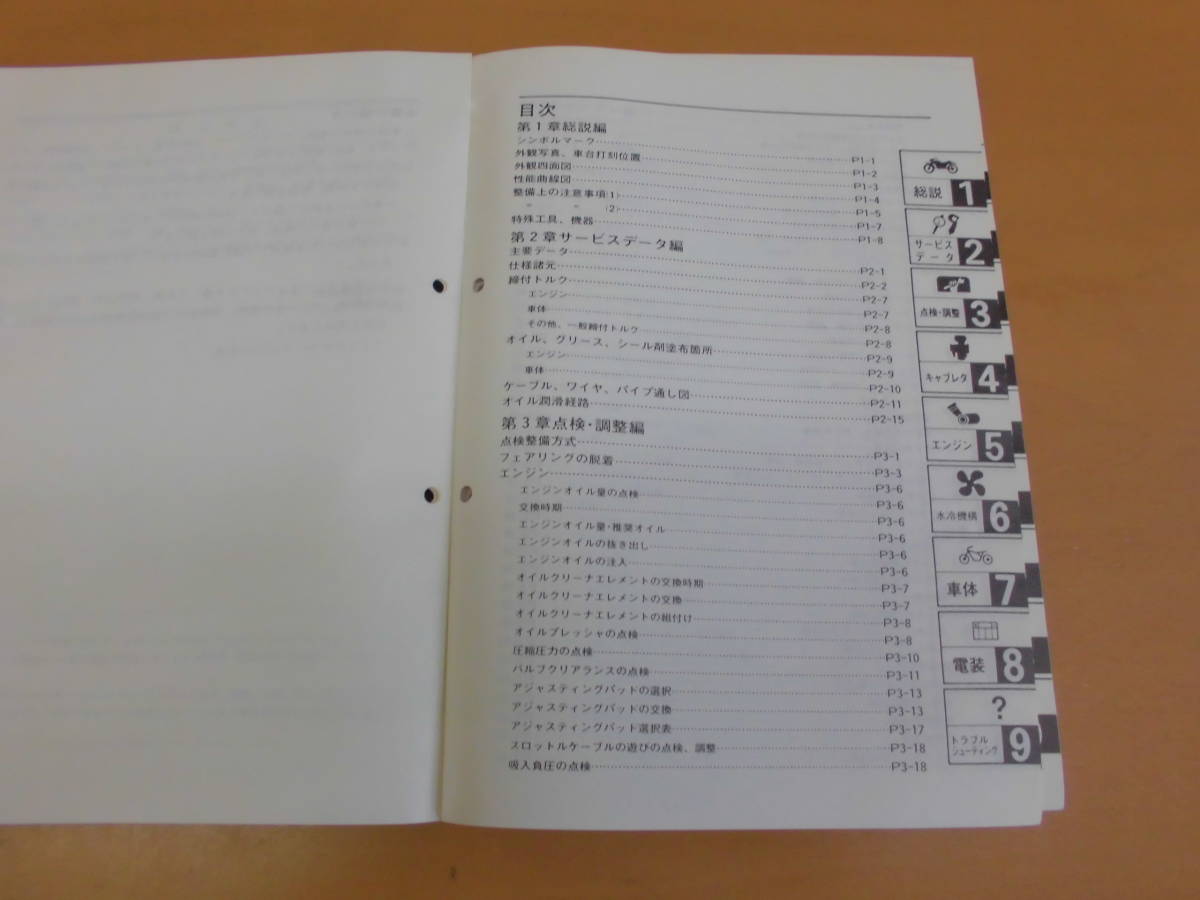 目次
第1章総説編
シンボルマーク……P1-1
外観写真、車台打刻位置……P1-2
外観四面図……P1-3
性能曲線図……P1-4
整備上の注意事項(1)……P1-5
〃 〃 (2)……P1-7
特殊工具、機器……P1-8
第2章サービスデータ編
主要データ……P2-1
仕様諸元……P2-2
締付トルク……P2-7
エンジン……P2-7
車体……P2-8
その他、一般締付トルク……P2-8
オイル、グリース、シール剤塗布箇所……P2-9
エンジン……P2-9
車体……P2-10
ケーブル、ワイヤ、パイプ通し図……P2-11
オイル潤滑経路……P2-15
第3章点検・調整編
点検整備方式……P3-1
フェアリングの脱着……P3-3
エンジン……P3-6
エンジンオイル量の点検……P3-6
交換時期……P3-6
エンジンオイル量・推奨オイル……P3-6
エンジンオイルの抜き出し……P3-6
エンジンオイルの注入……P3-6
オイルクリーナエレメントの交換時期……P3-7
オイルクリーナエレメントの交換……P3-7
オイルクリーナエレメントの組付け……P3-8
オイルプレッシャの点検……P3-8
圧縮圧力の点検……P3-10
バルブクリアランスの点検……P3-11
アジャスティングパッドの選択……P3-13
アジャスティングパッドの交換……P3-13
アジャスティングパット選択表……P3-17
スロットルケーブルの遊びの点検、調整……P3-18
吸入負圧の点検……P3-18
総説 1
サービス
データ 2
点検・調整 3
キャブレタ 4
エンジン 5
水冷機構 6
車体 7
電装 8
?
トラブル
シューティング 9